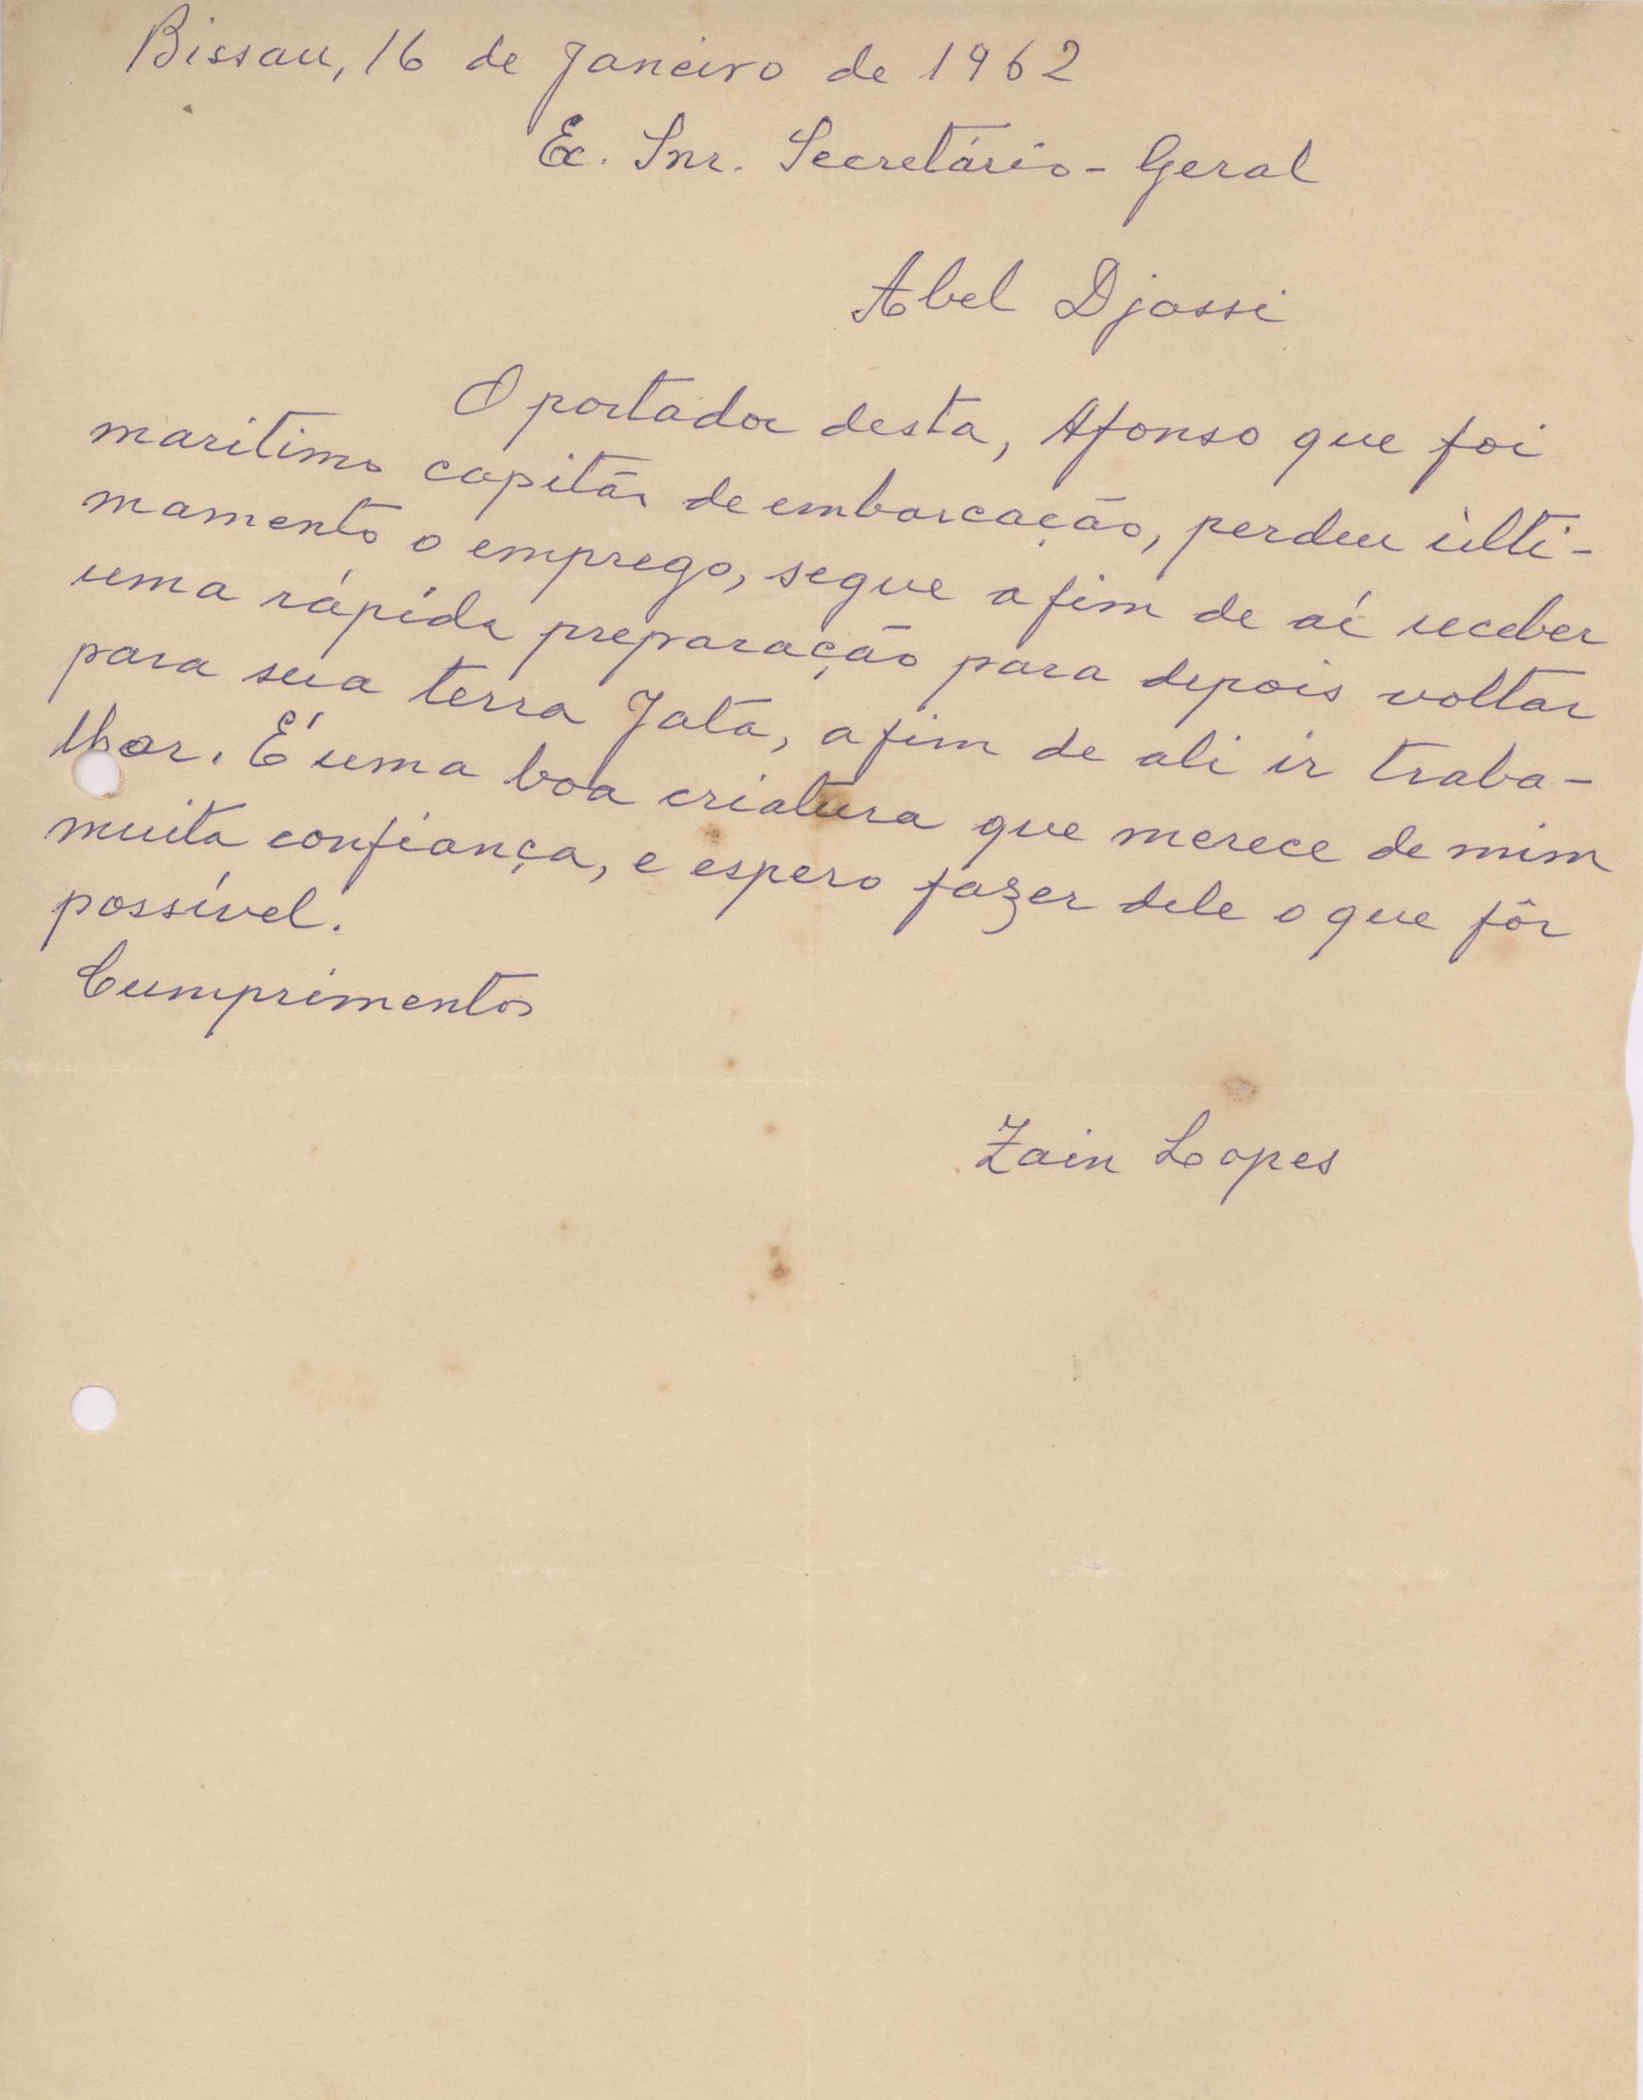 Bissau, 16 de Janeiro de 1962
Ex. Snr. Secretário-Geral
Abel Djassi
O portador desta, Afonso que foi
maritimo capitão de embarcação, perdeu ùlti-
mamento o emprego, segue afim de aí receber
uma rápida preparação para depois voltar
para sua terra Jata, afim de ali ir traba-
lhar. É uma boa criatura que merece de mim
muita confiança, e espero fazer dele o que fôr
possível.
Cumprimentos
Zain Lopes